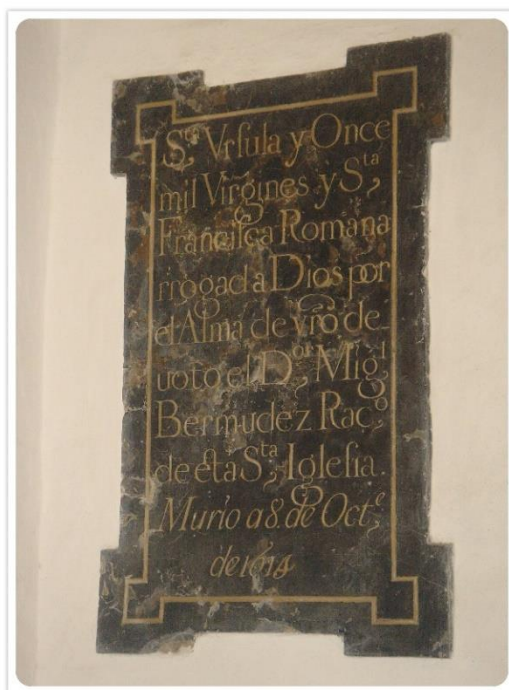 Sta Vrſula y Once
mil Virgines y Sta
Franciſca Romana
rrogad a Dios por
el Alma de vrõ de
uoto el Dor Migl
Bermudez Raco
de eſta Sta Igleſia.
Murio a 8. de Octe
de 1614